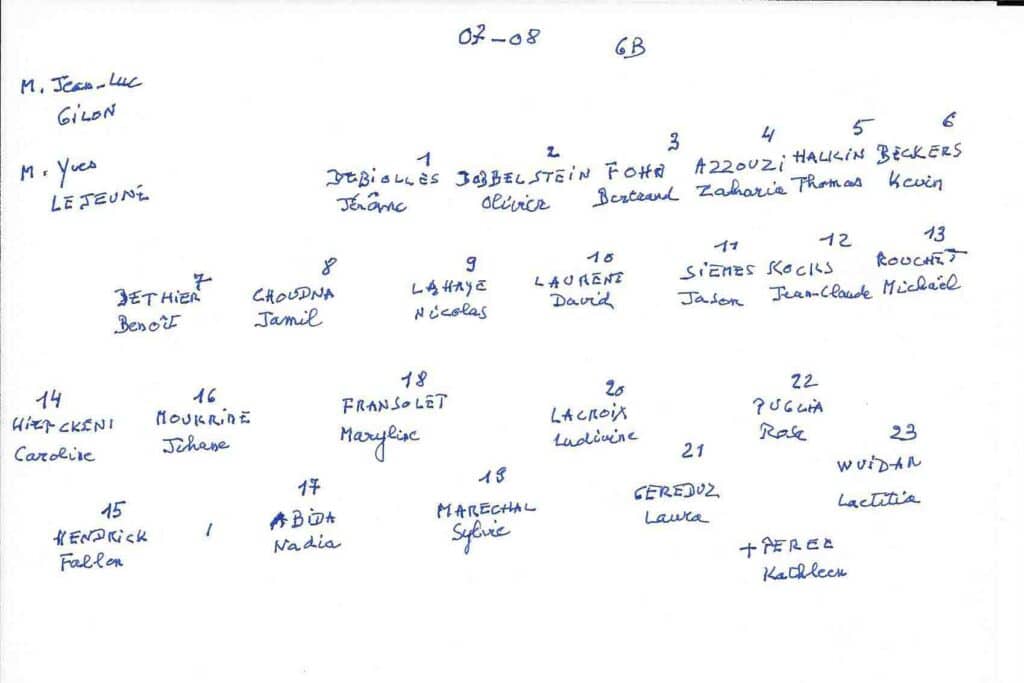 07-08 6B
M. Jean-Luc
GILON
M. Yves
LEJEUNE
1 2 3 4 5 6
DEBIOLLES DOBBELSTEIN FOHN AZZOUZI HALKIN BECKERS
Jérôme Olivier Bertrand Zakaria Thomas Kevin
7 8 9 10 11 12 13
DETHIER CHOUDNA LAHAYE LAURENT SIEMES KOCKS ROUCHET
Benoît Jamil Nicolas David Jason Jean-Claude Michaël
14 16 18 20 22
MOUKRIME FRANSOLET LACROIX PUGLIA
Caroline Jihane Maryline Ludivine Rose
15 17 19 21 23
HENDRICK ABIDA MARECHAL GEREDUZ WUIDAR
Fallon Nadia Sylvie Laura Laetitia
+PEREE
Kathleen